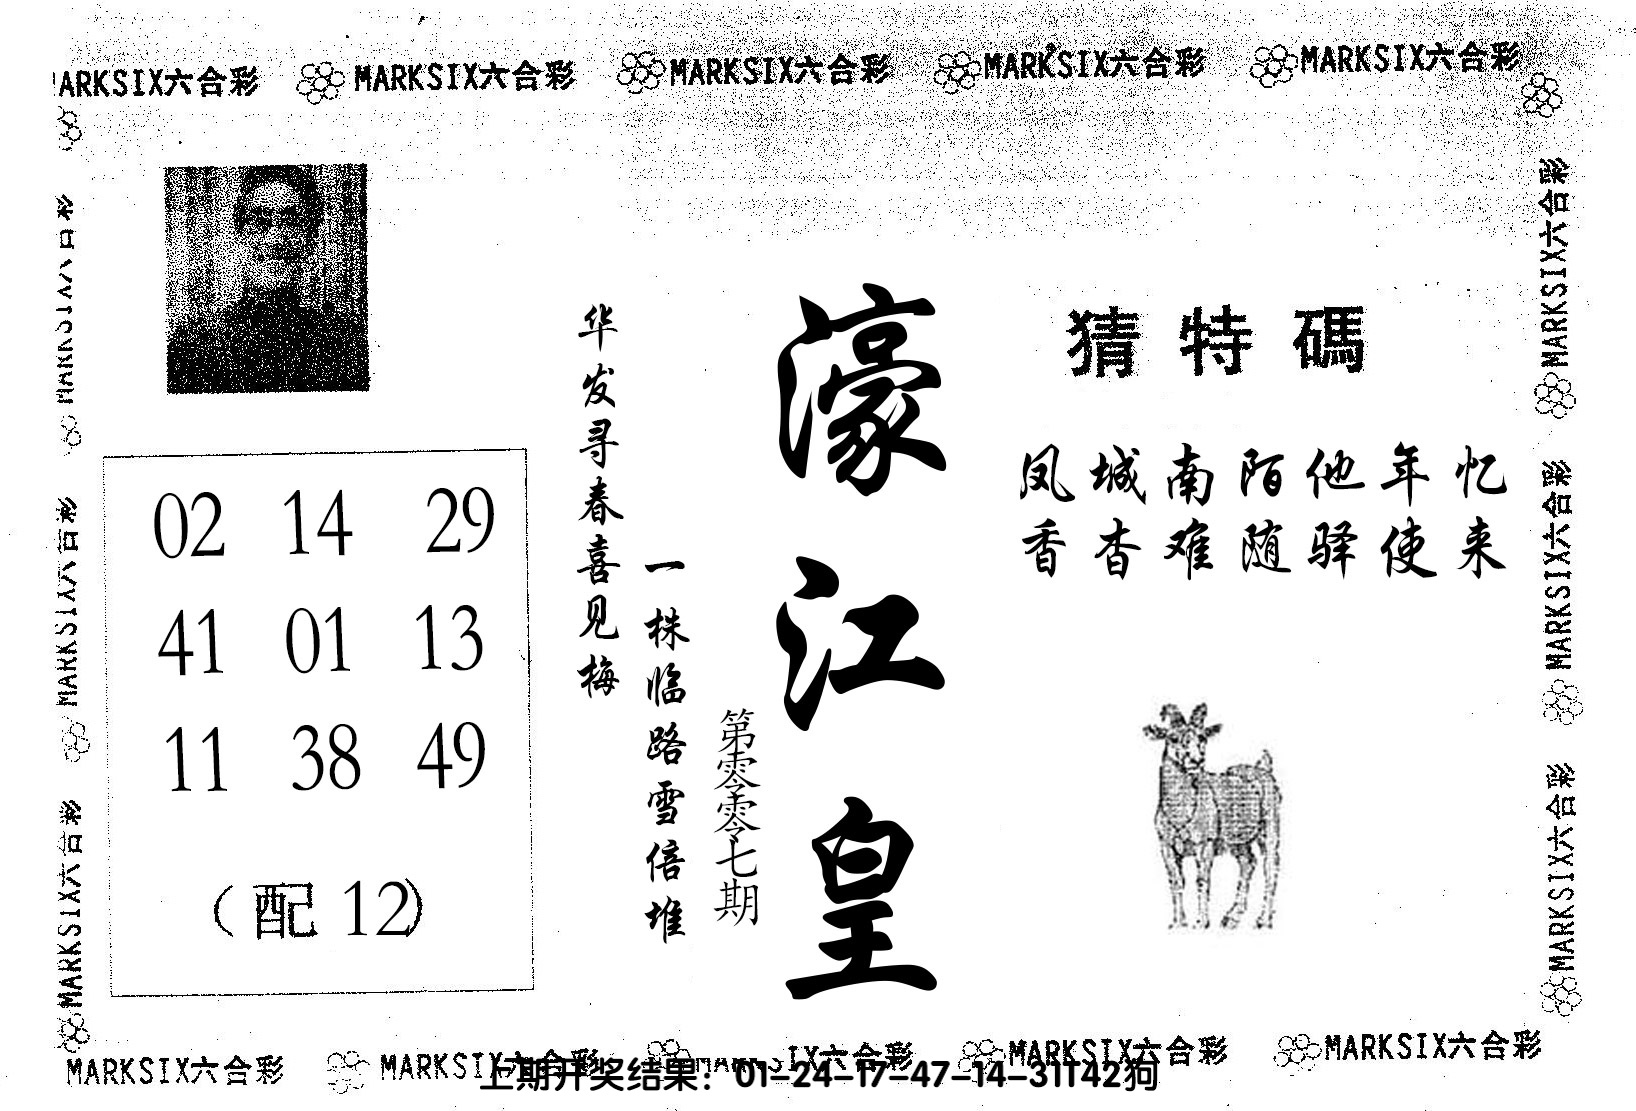 MARKSIX六合彩 MARKSIX六合彩 MARKSIX六合彩 MARKSIX六合彩
ARKSIX六合彩
02 14 29
41 01 13
11 38 49
（配 12）
华发寻春喜见梅
一株临路雪倍堆
第零零七期
濠江皇
猜特碼
凤城南陌他年忆
香杳难随驿使来
MARKSIX六合彩
MARKSIX六合彩
MARKSIX六合彩
MARKSIX六合彩
MARKSIX六合彩
MARKSIX六合彩
MARKSIX六合彩 MARKSIX六合彩 MARKSIX六合彩 MARKSIX六合彩
上期开奖结果：01-24-17-47-14-31T42狗